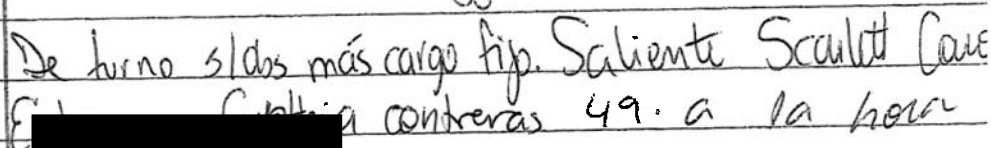 De turno s/dos más cargo fijo. Saliente Scarlett
contreras 49. a la hora